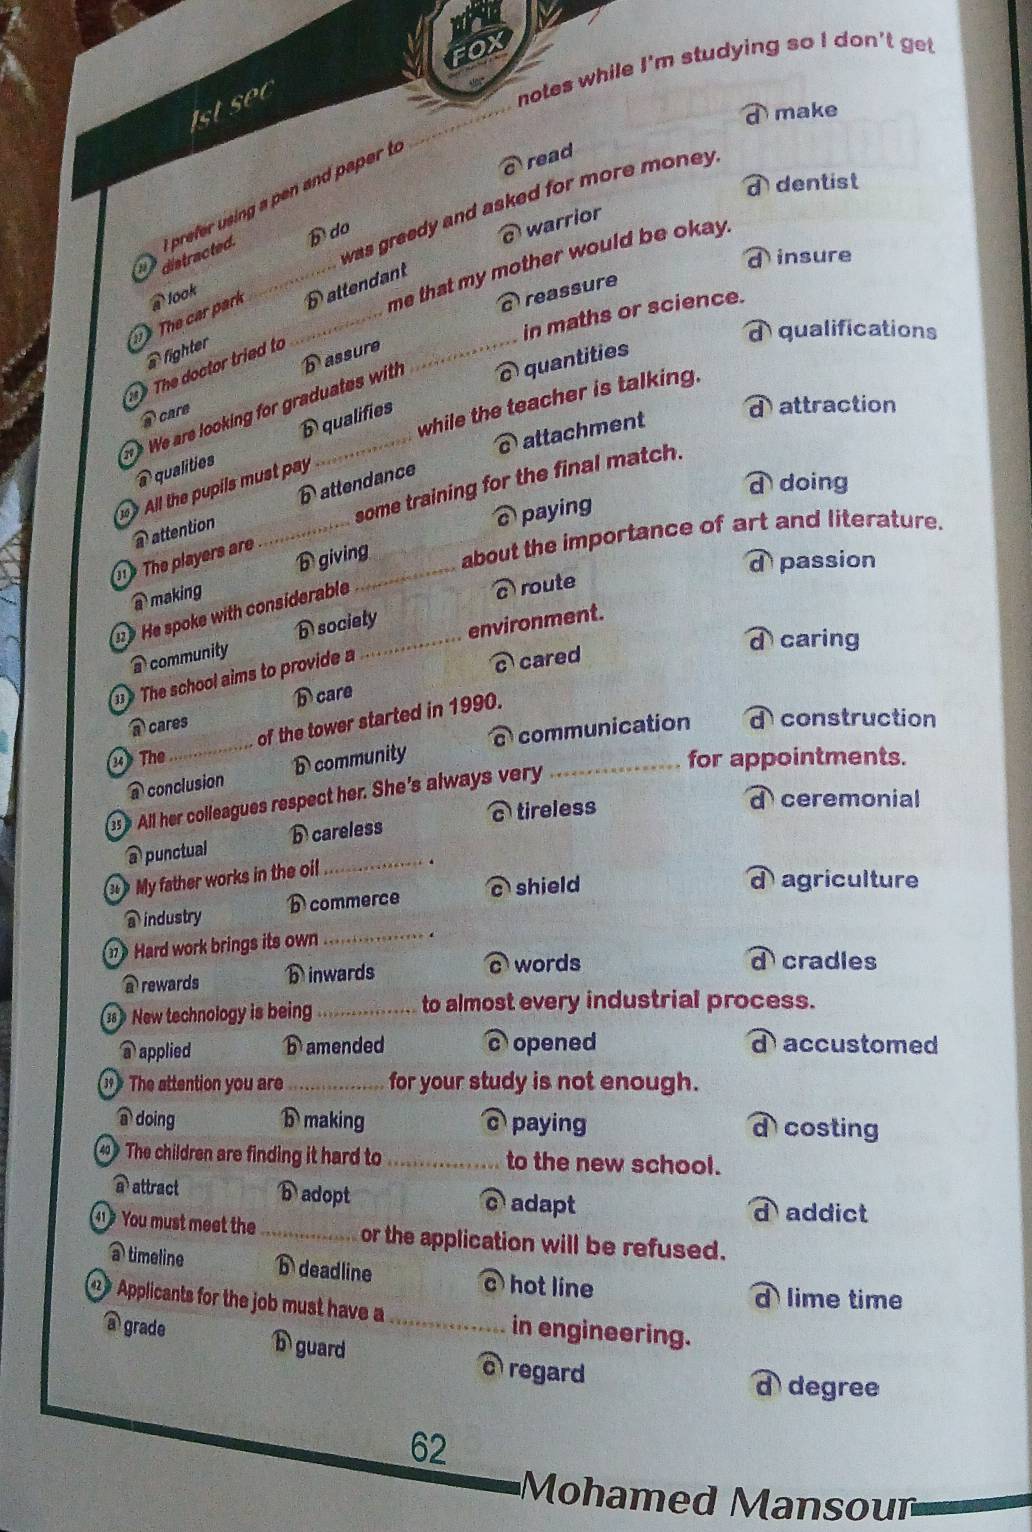 1st sec
FOX
26 I prefer using a pen and paper to .................. notes while I'm studying so I don't get
distracted.
a look b do c read d make
27 The car park .................. was greedy and asked for more money.
a fighter b attendant c warrior d dentist
28 The doctor tried to .................. me that my mother would be okay.
a care b assure c reassure d insure
29 We are looking for graduates with .................. in maths or science.
a qualities b qualifies c quantities d qualifications
30 All the pupils must pay .................. while the teacher is talking.
a attention b attendance c attachment d attraction
31 The players are .................. some training for the final match.
a making b giving c paying d doing
32 He spoke with considerable .................. about the importance of art and literature.
a community b society c route d passion
33 The school aims to provide a .................. environment.
a cares b care c cared d caring
34 The .................. of the tower started in 1990.
a conclusion b community c communication d construction
35 All her colleagues respect her. She's always very .................. for appointments.
a punctual b careless c tireless d ceremonial
36 My father works in the oil .................. .
a industry b commerce c shield d agriculture
37 Hard work brings its own .................. .
a rewards b inwards c words d cradles
38 New technology is being .................. to almost every industrial process.
a applied b amended c opened d accustomed
39 The attention you are .................. for your study is not enough.
a doing b making c paying d costing
40 The children are finding it hard to .................. to the new school.
a attract b adopt c adapt d addict
41 You must meet the .................. or the application will be refused.
a timeline b deadline c hot line d lime time
42 Applicants for the job must have a .................. in engineering.
a grade b guard c regard d degree
62
Mohamed Mansour